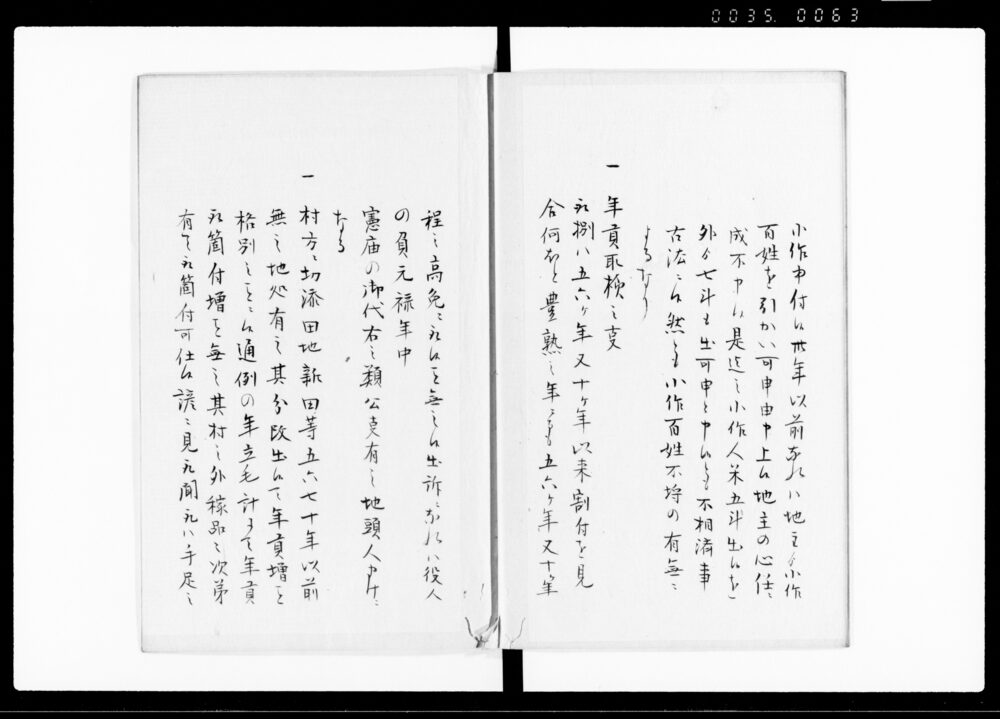 0035. 0063
小作申付候卅年以前なれハ地主ゟ小作
百姓を引かい可申由申上候地主の心任ニ
成不申候是迄之小作人米五斗出候を
外ゟ七斗も出可申と申候とも不相済事
古法ニ候然とも小作百姓不埒の有無ニ
よるなり
一 年貢取検之支
取捌ハ五六ヶ年又十ヶ年以来割付を見
合何ほと豊熟之年ニても五六ヶ年又十ヶ年
程之高免ニ取候を無之候出訴ニなれハ役人
の負元禄年中
憲庙の御代右之類公支有之地頭人申付ニ
なる
一 村方ニ切添田地新田等五六七十年以前
無之地処有之其分改出候て年貢増を
格別之ことニ候通例の年立毛計りて年貢
取箇付増を無之其村之外稼品之次第
有て取箇付可仕候諺ニ見取聞取ハ手足之